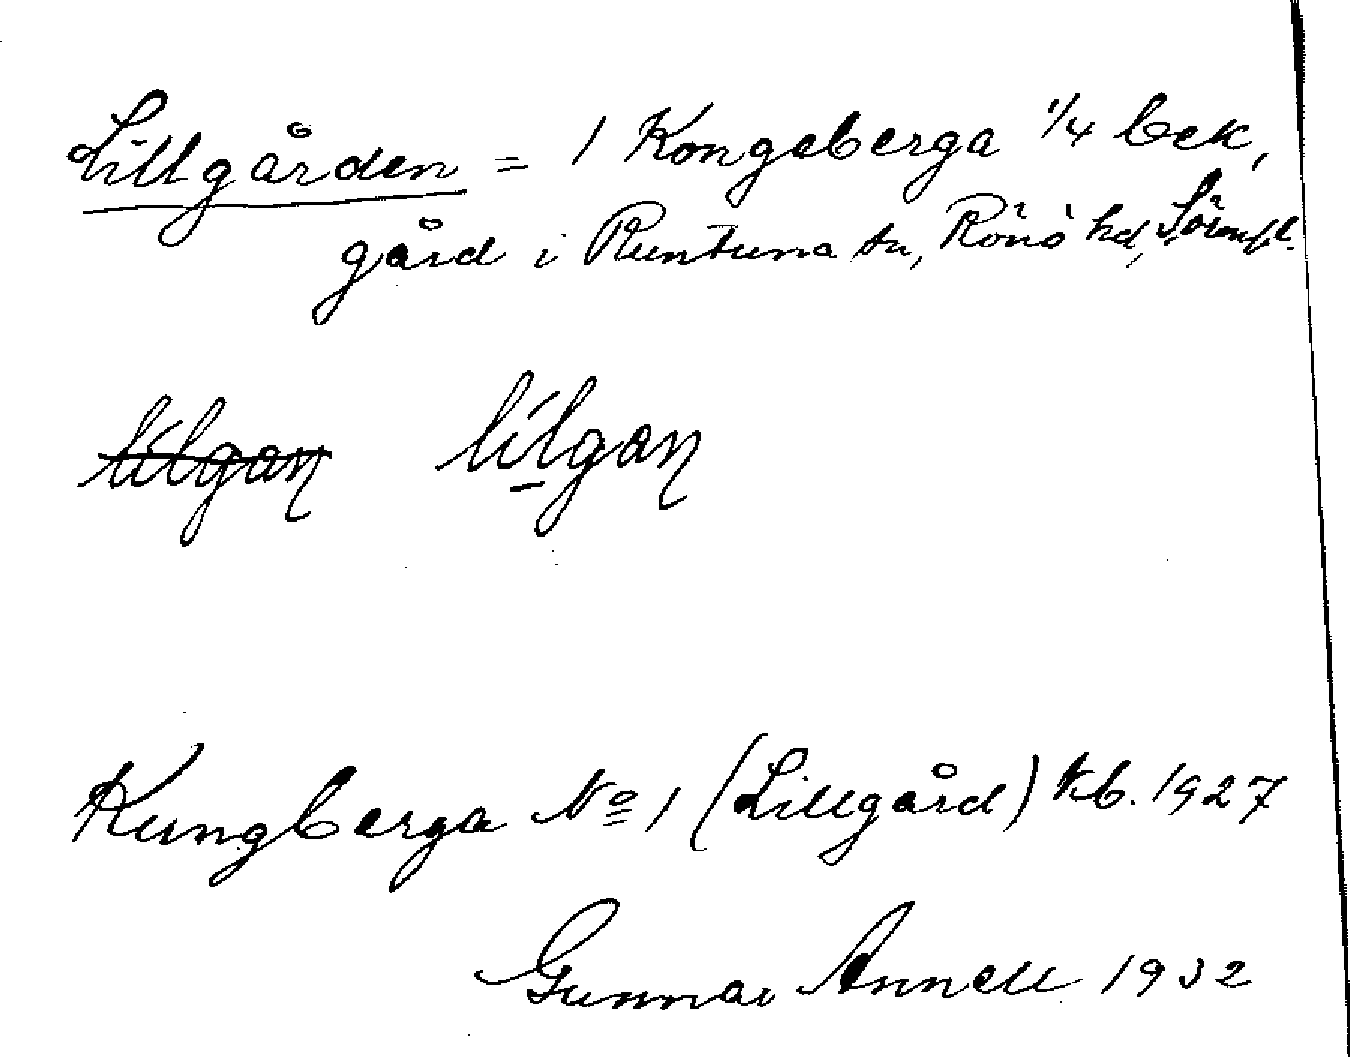 Lillgården = 1 Kongaberga 1/4 bek,
gård i Runtuna sn, Rönö hd, Sörml.
lilgaɳ lílgaɳ
Kungberga No 1 (Lillgård) kb. 1927
Gunnar Annell 1932